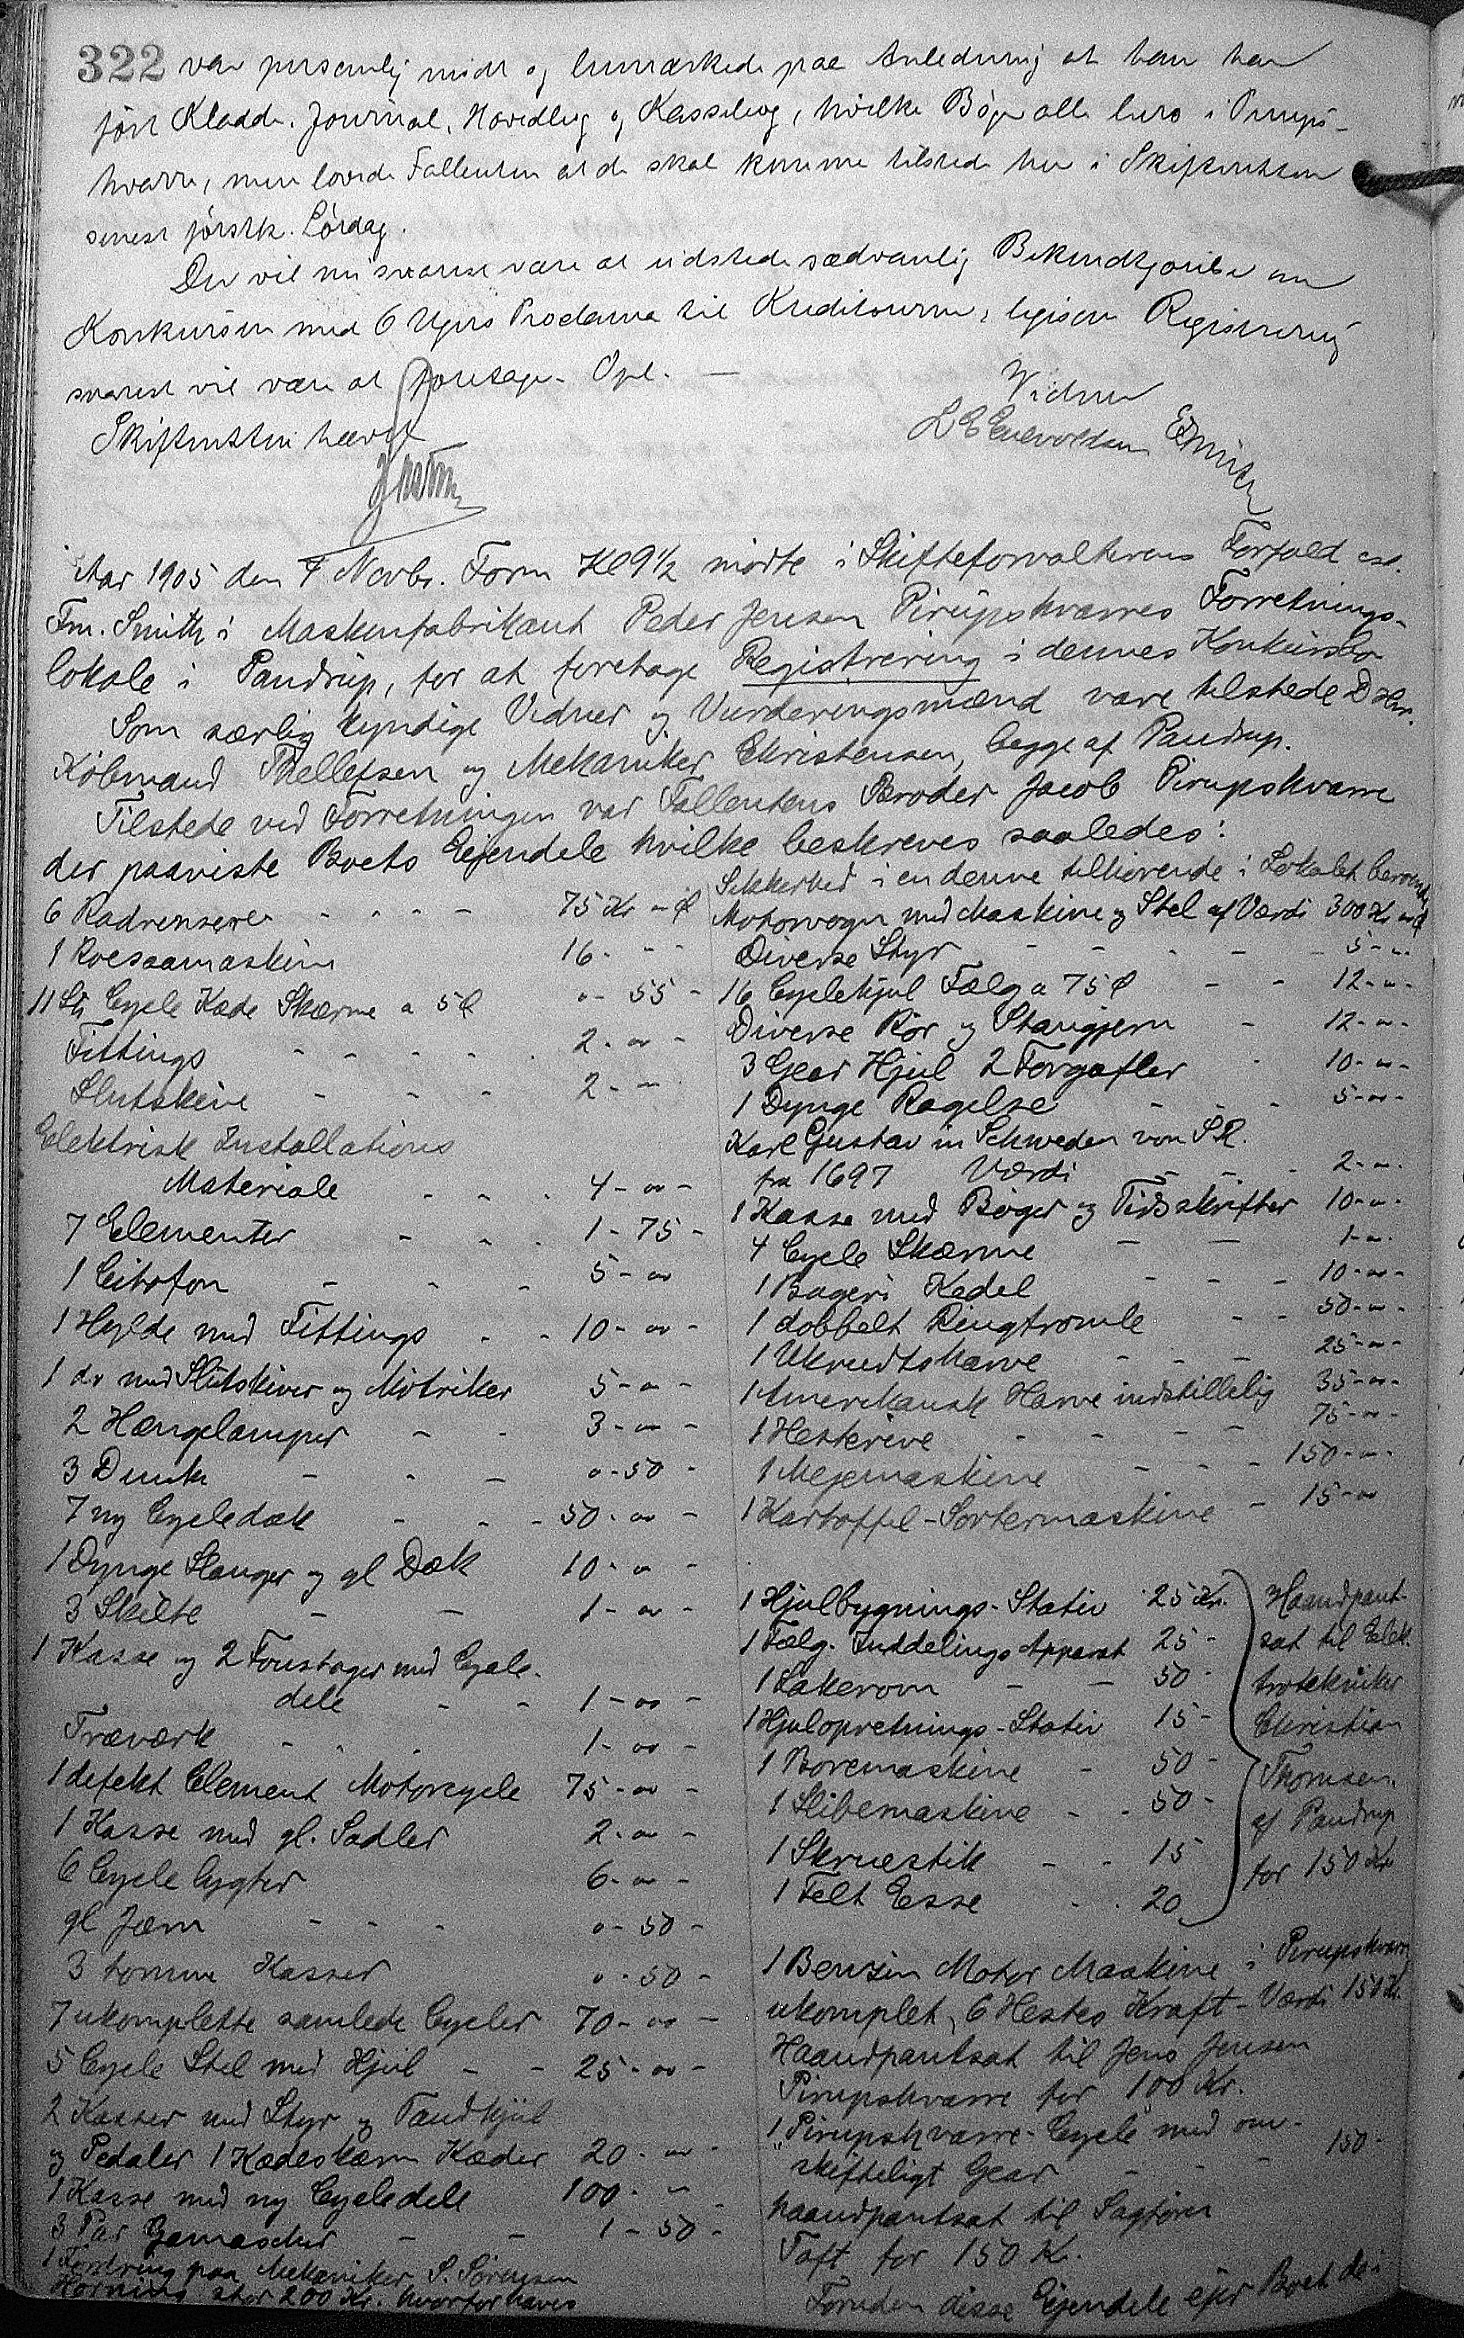 322 var personlig mødt og bemærkede paa Anledning at han har
ført Kladde, Journal, Hovedbog og Kassebog, hvilke Bøger alle bero i Pirups-
hvarre, men lovede Fallenten at de skal komme tilstede her i Skifteretten
senest førstk. Lørdag.
Der vil nu snarest være at udstede sædvanlig Bekendtgørelse om
Konkursen med 6 Ugers Proclama til Kreditorerne, ligesom Registrering
snarest vil være at foretage. Opl. —
Skifteretten hævet
Vidner
L E Enevoldsen
Aar 1905 den 7 Novbr. Form Kl 9½ mødte i Skifteforvalterens Forfald cst.
Fm. Smith i Maskinfabrikant Peder Jensen Pirupshvarres Forretnings-
lokale i Pandrup, for at foretage Registrering i dennes Konkursbo
Som særlig kyndige Vidner og Vurderingsmænd vare tilstede D Hrr.
Købmand Thellefsen og Mekaniker Christensen, begge af Pandrup.
Tilstede ved Forretningen var Fallentens Broder Jacob Pirupshvarre
der paaviste Boets Ejendele hvilke beskreves saaledes:
6 Radrensere - - - - 75 Kr - Ø
1 Roesaamaskine 16 - -
11 St. Cycle Kæde Skærme a 5 Ø 0 - 55 -
Fittings - - - - 2 - 00 -
Slutskive - - - 2 - -
Elektrisk Installations
Materiale - - - 4 - 00 -
7 Elementer - - - 1 - 75 -
1 Citofon - - - 5 - 00
1 Hylde med Fittings - - 10 - 00 -
1 do med Slutskiver og Møtriker 5 - 0 -
2 Hængelamper - - 3 - 00 -
3 Dunke - - - 0 - 50 -
7 ny Cycledæk - - - 50 - 00 -
1 Dynge Slanger og gl Dæk 10 - 0 -
3 Skilte - - 1 - 00 -
1 Kasse og 2 Foustager med Cycle-
dele - - 1 - 00 -
Træværk - - - 1 - 00 -
1 defekt Element Motorcycle 75 - 00 -
1 Kasse med gl. Sadler 2 - 00 -
6 Cycle Lygter 6 - 00 -
gl Jern - - - 0 - 50 -
3 tomme Kasser 0 - 50 -
7 ukomplette samlede Cycler 70 - 00 -
5 Cycle Stel med Hjul - - 25 - 00 -
2 Kasser med Styr og Tandhjul
og Pedaler 1 Kædeskærm Kæder 20 - 00 -
1 Kasse med ny Cycledele 100 - -
3 Par Gamascher - - 1 - 50 -
1 Fordring paa Mekaniker S. Sørensen
Hørning stor 200 Kr. hvorfor haves
Sikkerhed i en denne tilhørende i Lokalet beroende
Motorvogn med Maskine og Stel af Værdi 300 Kr 00 Ø
Diverse Styr - - - - 5 - 00 -
16 Cyclehjul Fælg a 75 Ø - - 12 - 00 -
Diverse Rør og Stangjern - 12 - 00 -
3 Gear Hjul 2 Forgafler - 10 - 00 -
1 Dynge Ragelse - - - 5 - 00 -
Karl Gustav in Schweden von S R.
fra 1697 Værdi - - - 2 - 00 -
1 Kasse med Bøger og Tidsskrifter 10 - 00 -
4 Cycle Skærme - - 1 - 00 -
1 Bageri Kedel - - - 10 - 00 -
1 dobbelt Ringtromle - - 50 - 00 -
1 Ukrudtsharve - - - 25 - 00 -
1 Amerikansk Harve indstillelig 35 - 00 -
1 Hesterive - - - - 75 - 00 -
1 Mejemaskine - - - 150 - 00 -
1 Kartoffel-Sortermaskine - 15 - 00
1 Hjulbygnings-Stativ 25 Kr.
1 Fælg. Inddelings Apparat 25 -
1 Lakerovn - - 50 -
1 Hjulopretnings-Stativ 15 -
1 Boremaskine - 50 -
1 Slibemaskine - - 50 -
1 Skruestik - - 15
1 Felt Esse - - 20
Haandpant-
sat til Elek-
trotekniker
Christian
Thomsen
af Pandrup
for 150 Kr.
1 Benzin Motor Maskine i Pirupshvarre
ukomplet, 6 Hestes Kraft - Værdi 150 Kr.
Haandpantsat til Jens Jensen
Pirupshvarre for 100 Kr.
1 "Pirupshvarre-Cycle" med om-
skifteligt Gear - - - 150 -
haandpantsat til Sagfører
Toft for 150 Kr.
Foruden disse Ejendele ejer Boet de i